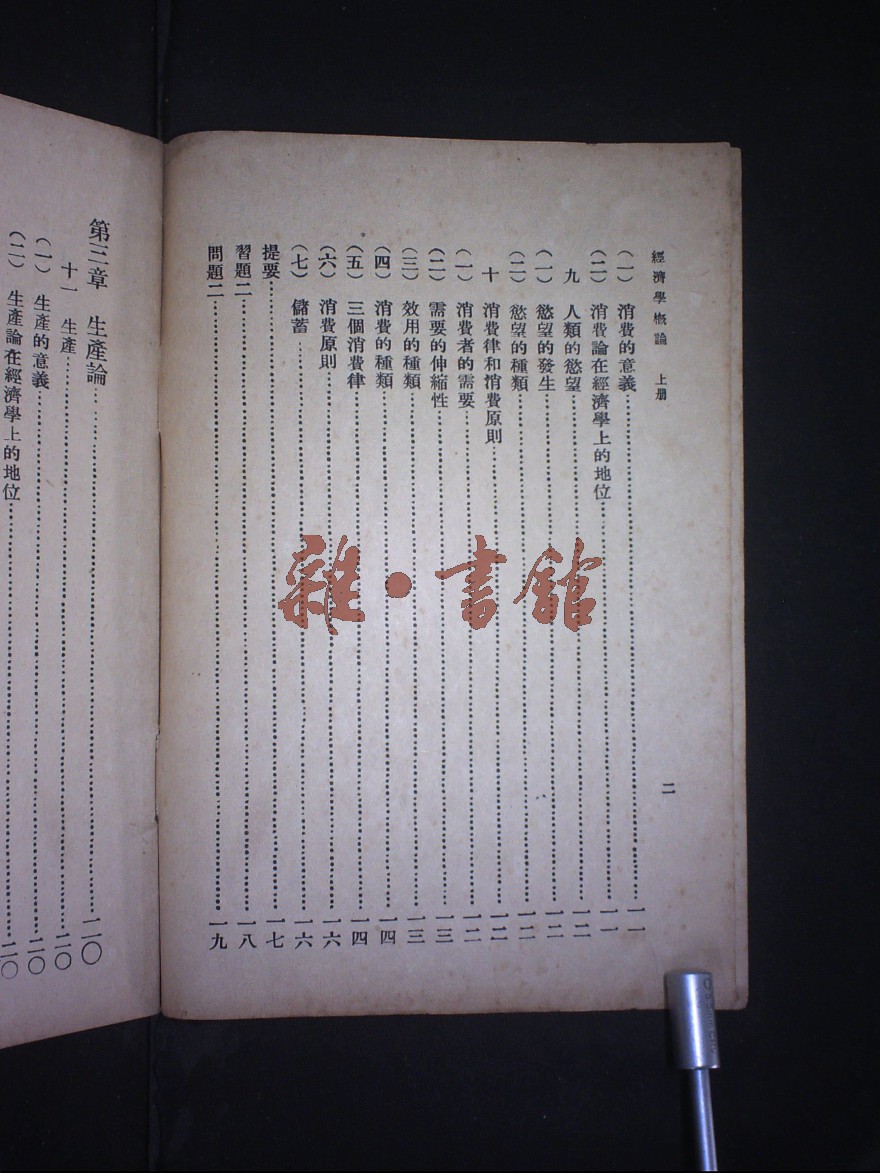 經濟學概論 上册
二
(一) 消費的意義……一一
(二) 消費論在經濟學上的地位……一一
九 人類的慾望……一二
(一) 慾望的發生……一二
(二) 慾望的種類……一二
十 消費律和消費原則……一二
(一) 消費者的需要……一二
(二) 需要的伸縮性……一三
(三) 效用的種類……一三
(四) 消費的種類……一四
(五) 三個消費律……一四
(六) 消費原則……一六
(七) 儲蓄……一六
提要……一七
習題二……一八
問題二……一九
第三章 生產論……二〇
十一 生產……二〇
(一) 生產的意義……二〇
(二) 生產論在經濟學上的地位……二〇
雜·書館